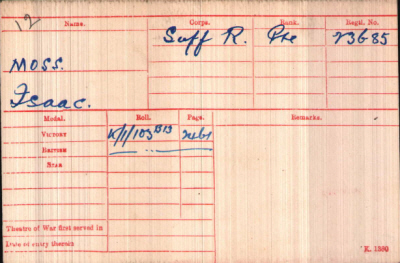 12
Name. Corps. Rank. Regtl. No.
Suff R. Pte 23685
MOSS.
Isaac.
Medal. Roll. Page. Remarks.
VICTORY K/1/103
BRITISH
STAR
Theatre of War first served in
Date of entry therein
K. 1380